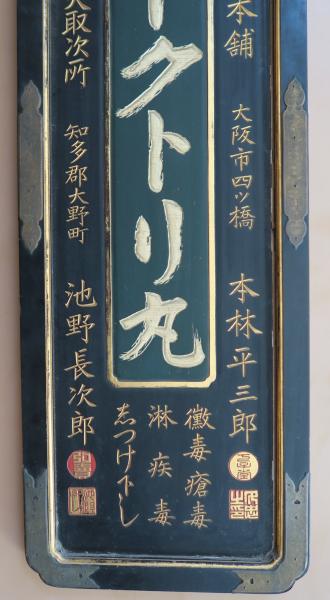 本舗 大阪市四ツ橋 本林平三郎
クトリ丸
黴毒瘡毒
淋疾毒
志つけ下し
取次所 知多郡大野町 池野長次郎